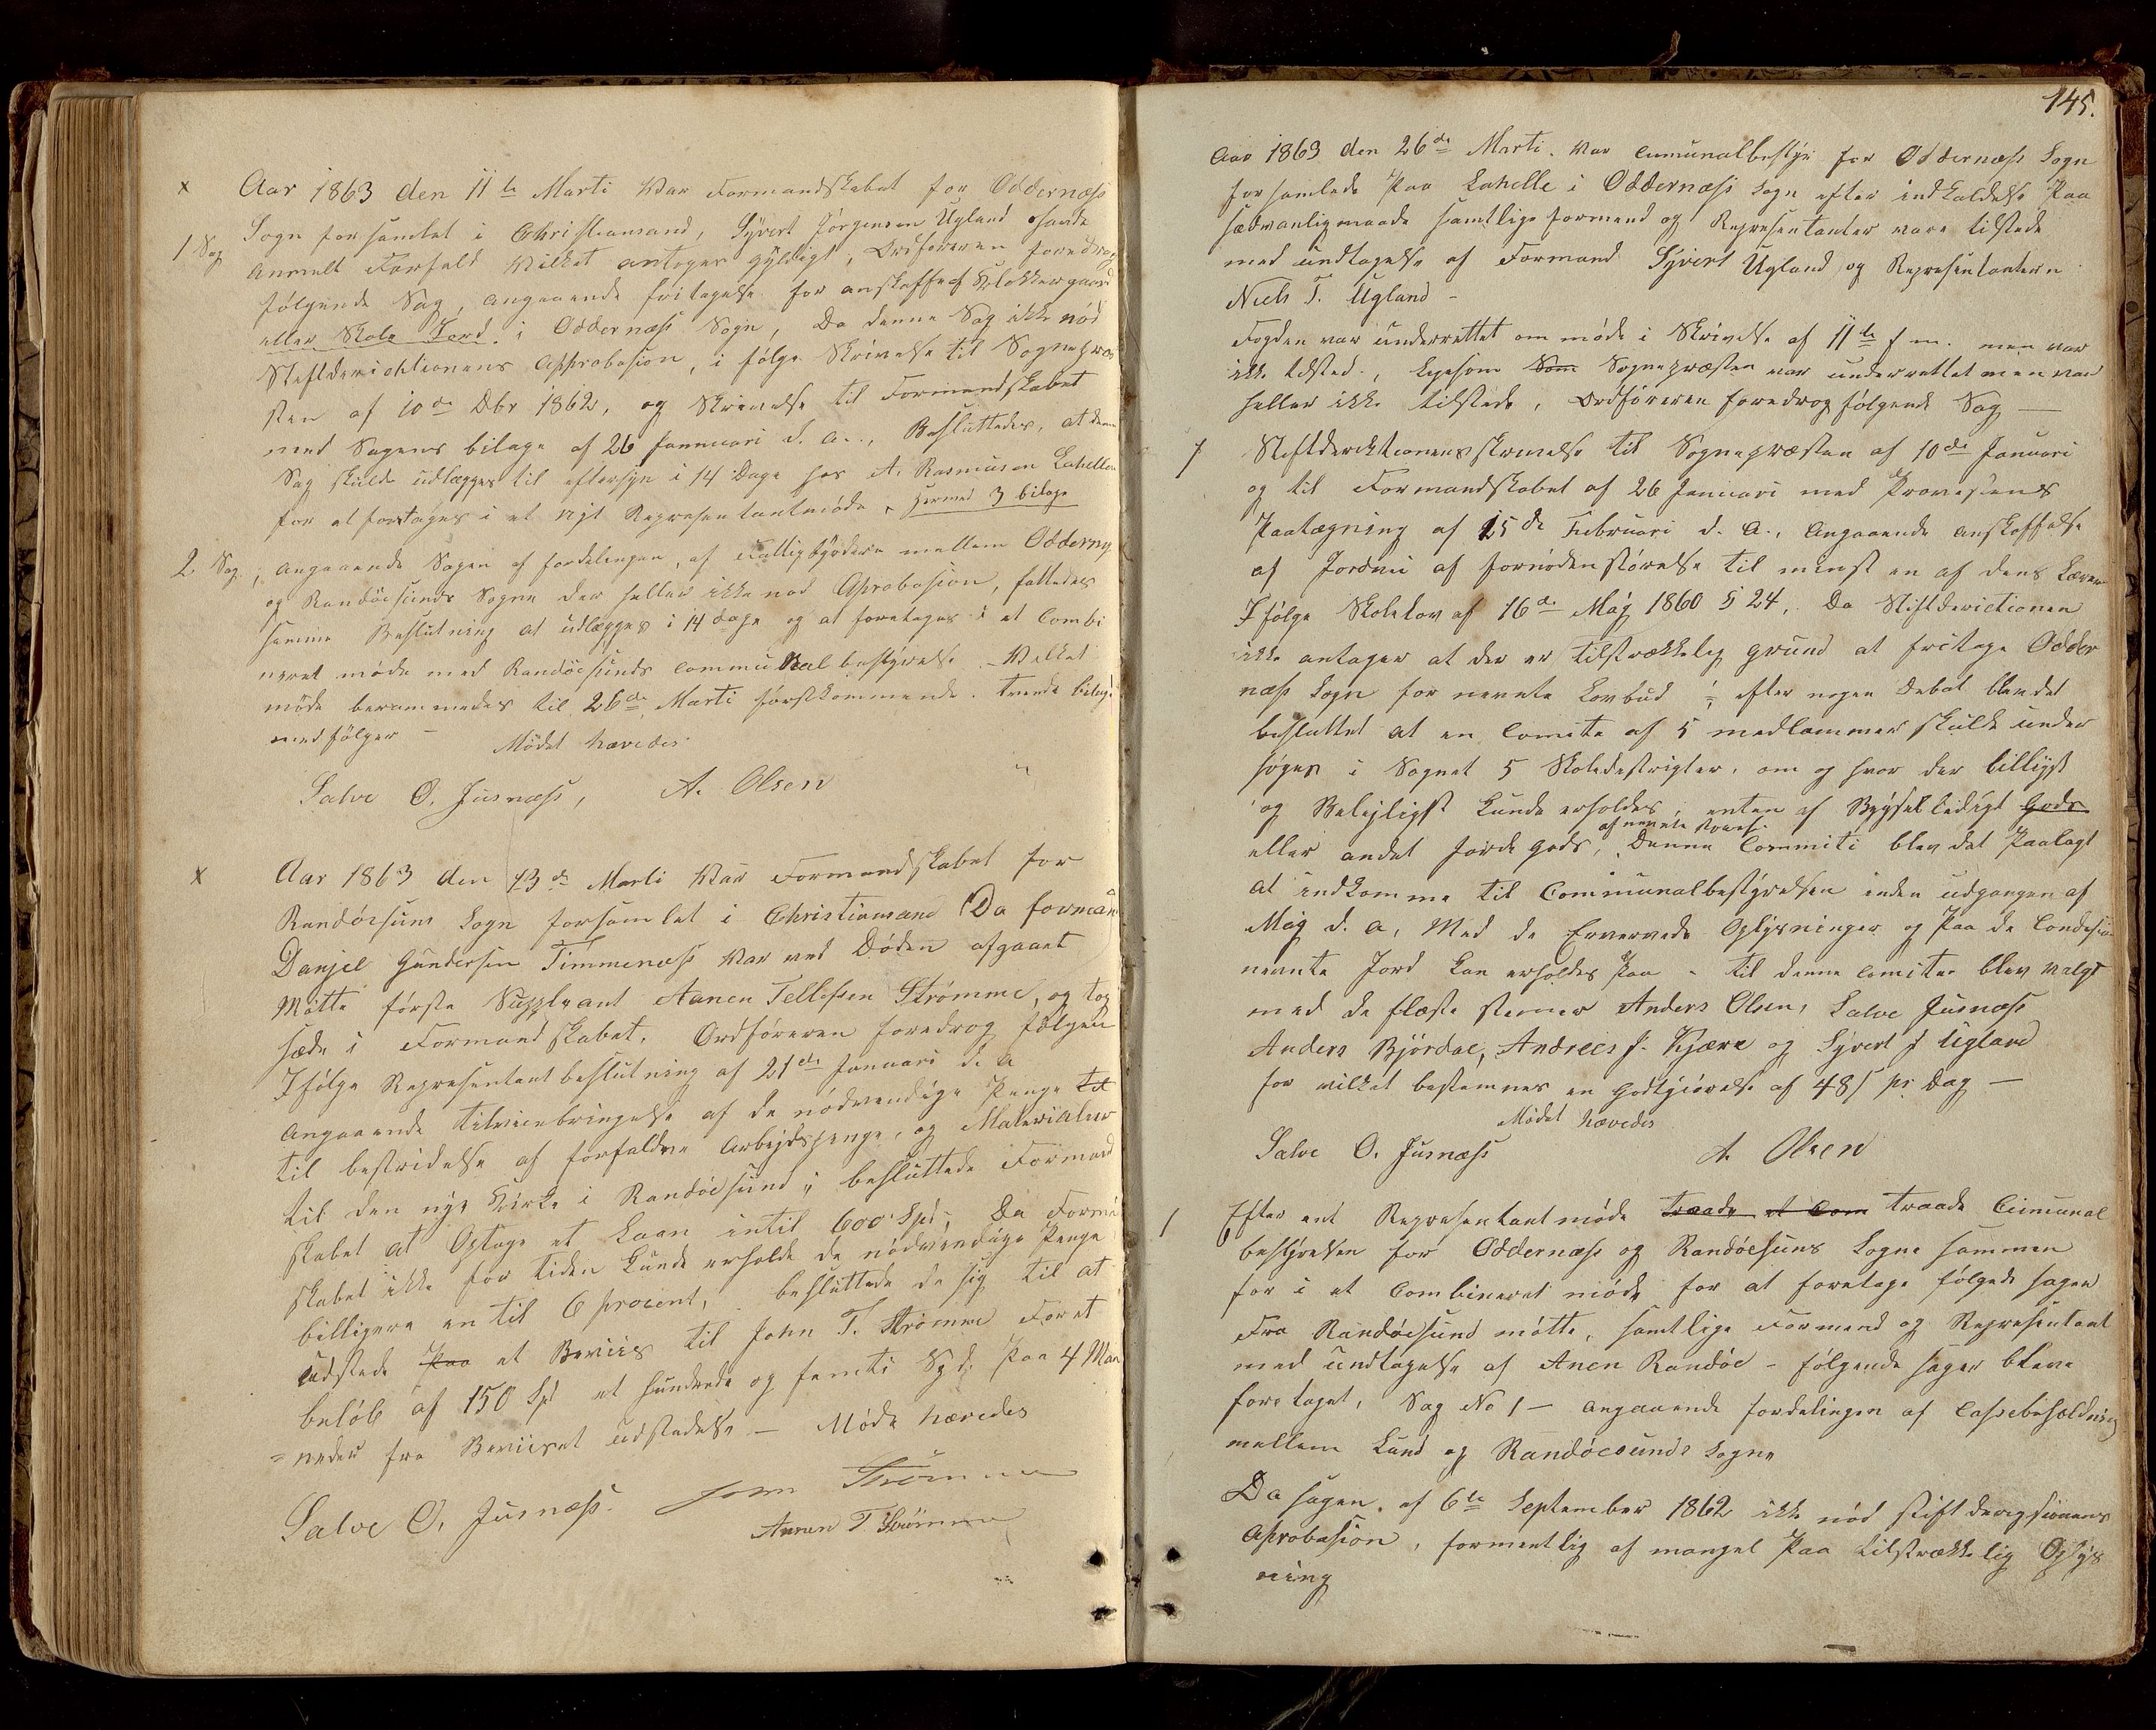 x Aar 1863 den 11te Marti Var Formandskabet for Oddernæss
Sogn forsamlet i Christiansand, Syvert Jørgensen Ugland havde
1 Sag anmelt Forfald vilket antoges gyldigt, Ordføreren foredrog
følgende Sag, angaaende fritagelse for anskaffe af Klokkergaard
eller Skole Jord. i Oddernæss Sogn, Da denne Sag ikke nød
Stiftderichtionens Approbasion, i følge Skrivelse til Sognepræ
sten af 10de Dbr 1862, og Skrivelse til Formandskabet
med Sagens bilage af 26 Januari d. a., Besluttedes, at denne
Sag skulde udlægges til eftersyn i 14 Dage hos A. Rasmusen Lahelle
for at foretages i et nyt Representantmøde, hermed 3 bilage
2 Sag, angaaende Sagen af fordelingen, af Fattigbyøderne mellem Odderny
og Randøesunds Sogne der heller ikke nød Aprobasion, fattedes
samme Beslutning at udlægges i 14 dage og at foretages i et Combi
neret møde med Randøesunds Communalbestyrelse. Velket
møde berammedes til 26de Marti førstkommende. Trende bilage
medfølger -
Mødet hævedes
Salve O. Jusnæss, A. Olsen
x Aar 1863 den 13de Marti Var Formandskabet for
Randøesuns Sogn forsamlet i Christiansand Da forman
Danjel Gundersen Timmenes Var ved Døden afgaaet
Møtte første Suppleant Aanen Tellefsen Strømme, og tog
sæde i Formandskabet. Ordføreren foredrog følgen
Ifølge Representantbeslutning af 21de Januari d. a
Angaaende tilveiebringelse af de nødvendige Penge til
til bestridelse af forfaldne Arbejdspenge, og Materialer
til den nye Kirke i Randøesund; besluttede Formand
skabet at Optage et Laan intil 600 Spd; Da Forma
skabet ikke for tiden kunde erholde de nødvendige Penge
billigere en til 6 procent, besluttede de sig til at
udstede Paa et Beviis til John T. Strømme For et
beløb af 150 Spd et hundrede og femti Spd. paa 4 Maa
=neder fra Beviiset udstedelse - Møde hævedes
Salve O. Jusnæss. John Strømme
Aanen T Strømme
145.
Aar 1863 den 26de Marti. Var Cumunalbestyr for Oddernæss Sogn
forsamlede Paa Lahelle i Oddernæss Sogn efter indkaldelse Paa
sædvanligmaade samtlige formend og Representanter vare tilstede
med undtagelse af Formand Syvert Ugland og Representanten
Niels T. Ugland -
Fogden var underrettet om møde i Skrivelse af 11te f m. men var
ikke tilsted., ligesom Som Sognepræsten var underrettet men var
heller ikke tilstede, Ordføreren foredrog følgende Sag —
1 Stiftderektionens skrivelse til Sognepræsten af 10de Januari
og til Formandskabet af 26 Januari med Provestens
Paategning af 15de Februari d. A., angaaende anskaffelse
af Jord af fornøden størelse til minst en af dens Lærere
Ifølge Skolelov af 16de Maj 1860 § 24, Da Stiftderictionen
ikke antager at der er tilstrækkelig grund at fritage Odder
næss Sogn for nevnte Lovbud ; efter nogen Debat blev det
besluttet at en Comite af 5 medlemmer skulde under
søges i Sognet 5 Skoledestrigter, om og hvor der billigst
og Belejligst kunde erholdes, enten af Bygselledigt Gods
af nevnte størels.
eller andet jordegods, Denne Commiti blev det Paalagt
at indkomme til Communalbestyrelsen inden udgangen af
Maj d. A, Med de Erværvede Oplysninger og Paa de Condesio
nevnte Jord kan erholdes Paa - til denne Comitee blev valgt
med de fleste stemer Anders Olsen, Salve Jusnæss
Anders Bjørdal, Andrees J. Kjære og Syvert J Ugland
for vilket bestemmes en Godtgiørelse af 48 s pr. Dag —
Mødet hævedes
Salve O. Jusnæss A. Olsen
1 Efter ent Representantmøde traade et Com traade Cumunal
bestyrelsen for Oddernæss og Randøesuns Sogne sammen
for i et Combineret møde for at foretage følgede sager
Fra Randøesund møtte, samtlige Formend og Representant
med undtagelse af Anen Randøe - følgende sager bleve
foretaget, Sag No 1 — angaaende fordelingen af Cassebeholdning
mellem Lund og Randøesunds Sogne
Da sagen, af 6te September 1862 ikke nød Stiftderigsionens
Aprobasion, formentlig af mangel Paa tilstrækkelig Oplys
ning